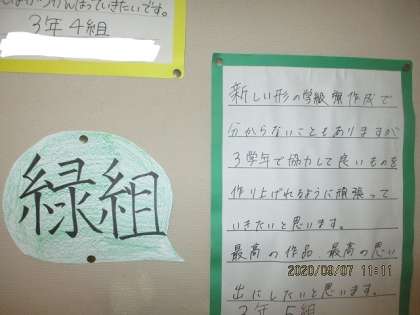 がんばっていきたいです。
3年4組
緑組
新しい形の学級旗作成で
分からないこともありますが
3学年で協力して良いものを
作り上げれるように頑張って
いきたいと思います。
最高の作品、最高の思い
出にしたいと思います。
3年5組
2020/09/07 11:11